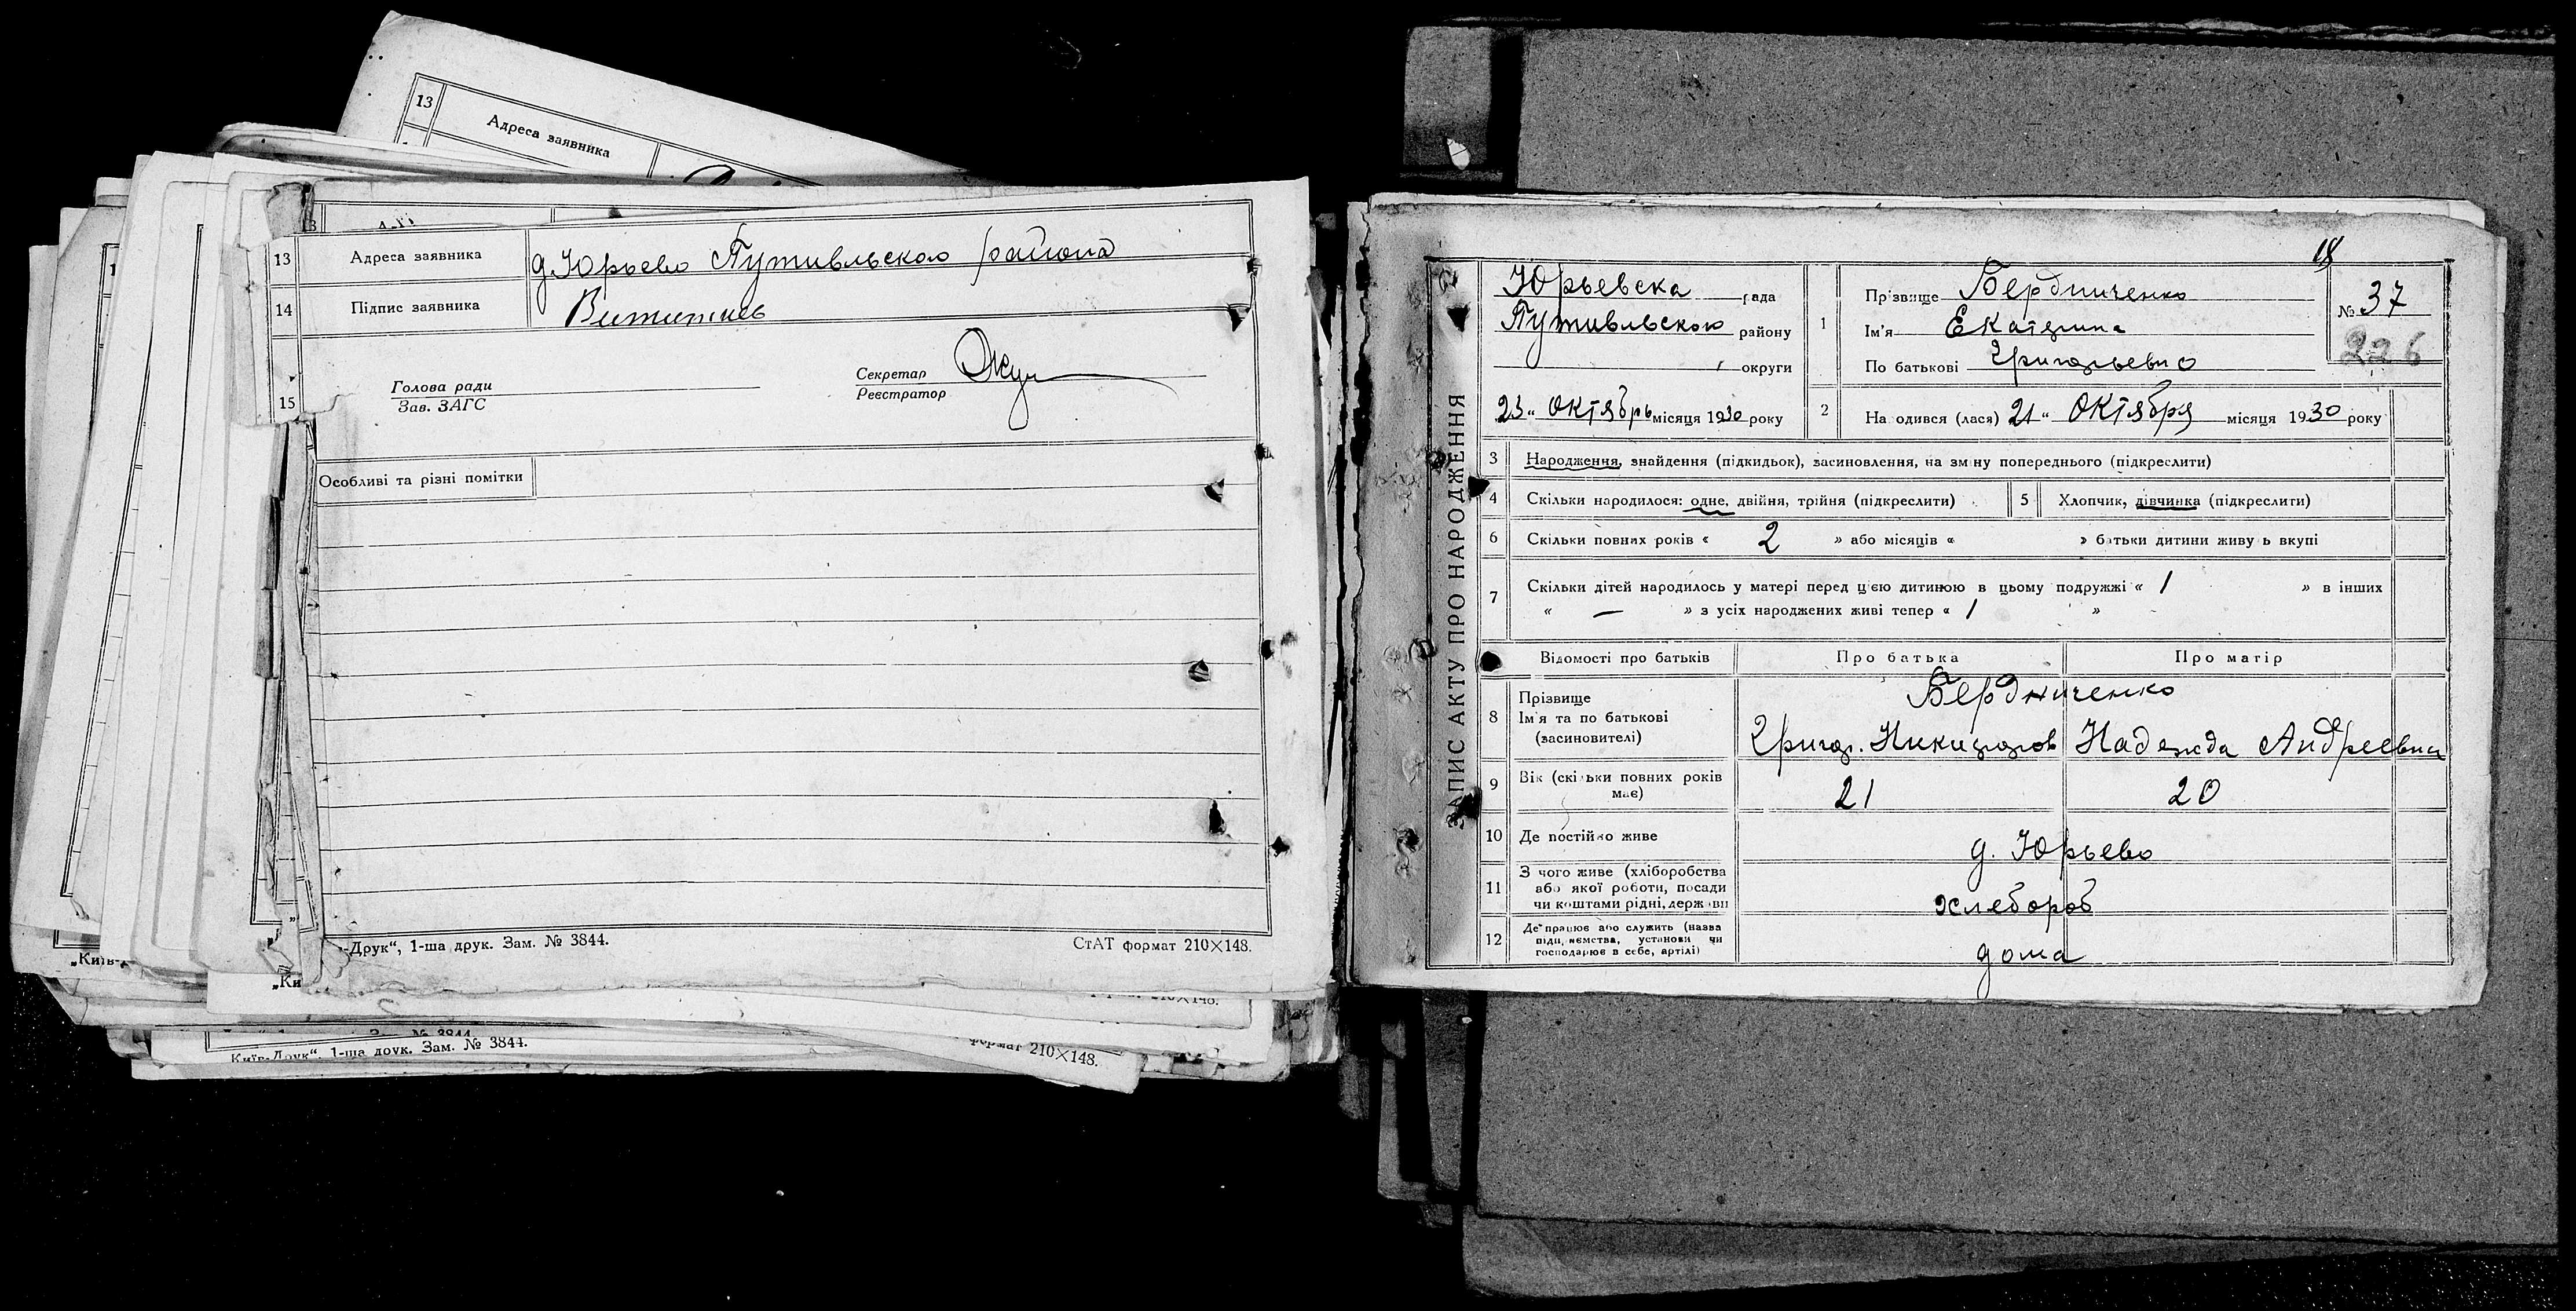 13
Адреса заявника
13 Адреса заявника д. Юрьево Путивльского района
14 Підпис заявника
15 Голова ради Секретар
Зав. ЗАГС Реєстратор
Особливі та різні помітки
-Друк“, 1-ша друк. Зам. № 3844. СтАТ формат 210×148.
„Київ-
„Ки
Київ-Друк“, 1-ша друк. Зам. № 3844. формат 210×148.
18
ЗАПИС АКТУ ПРО НАРОДЖЕННЯ
Юрьевска рада
Путивльского району
округи
23 „ Октябрь місяця 1930 року
1 Прізвище Бердниченко
Ім'я Екатерина
По батькові Григорьевна
№ 37
226
2 На одився (лася) 21 „ Октября місяця 1930 року
3 Народження, знайдення (підкидьок), засиновлення, на зміну попереднього (підкреслити)
4 Скільки народилося: одне, двійня, трійня (підкреслити) 5 Хлопчик, дівчинка (підкреслити)
6 Скільки повних років « 2 » або місяців « » батьки дитини живуть вкупі
7 Скільки дітей народилось у матері перед цією дитиною в цьому подружжі « 1 » в інших
« — » з усіх народжених живі тепер « 1 »
Відомості про батьків Про батька Про матір
8 Прізвище Бердниченко
Ім'я та по батькові
(засиновителі) Григор. Никифоров Надежда Андреевна
9 Вік (скільки повних років має) 21 20
10 Де постійно живе д. Юрьево
11 З чого живе (хліборобства
або якої роботи, посади
чи коштами рідні, держави хлебороб
12 Де працює або служить (назва
підприємства, установи чи
господарює в себе, артілі) дома